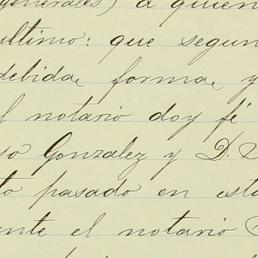 generales) á quien
ultimo: que segun
debida forma, y
el notario doy fé
so Gonzalez y D.
to pasado en esta
ante el notario